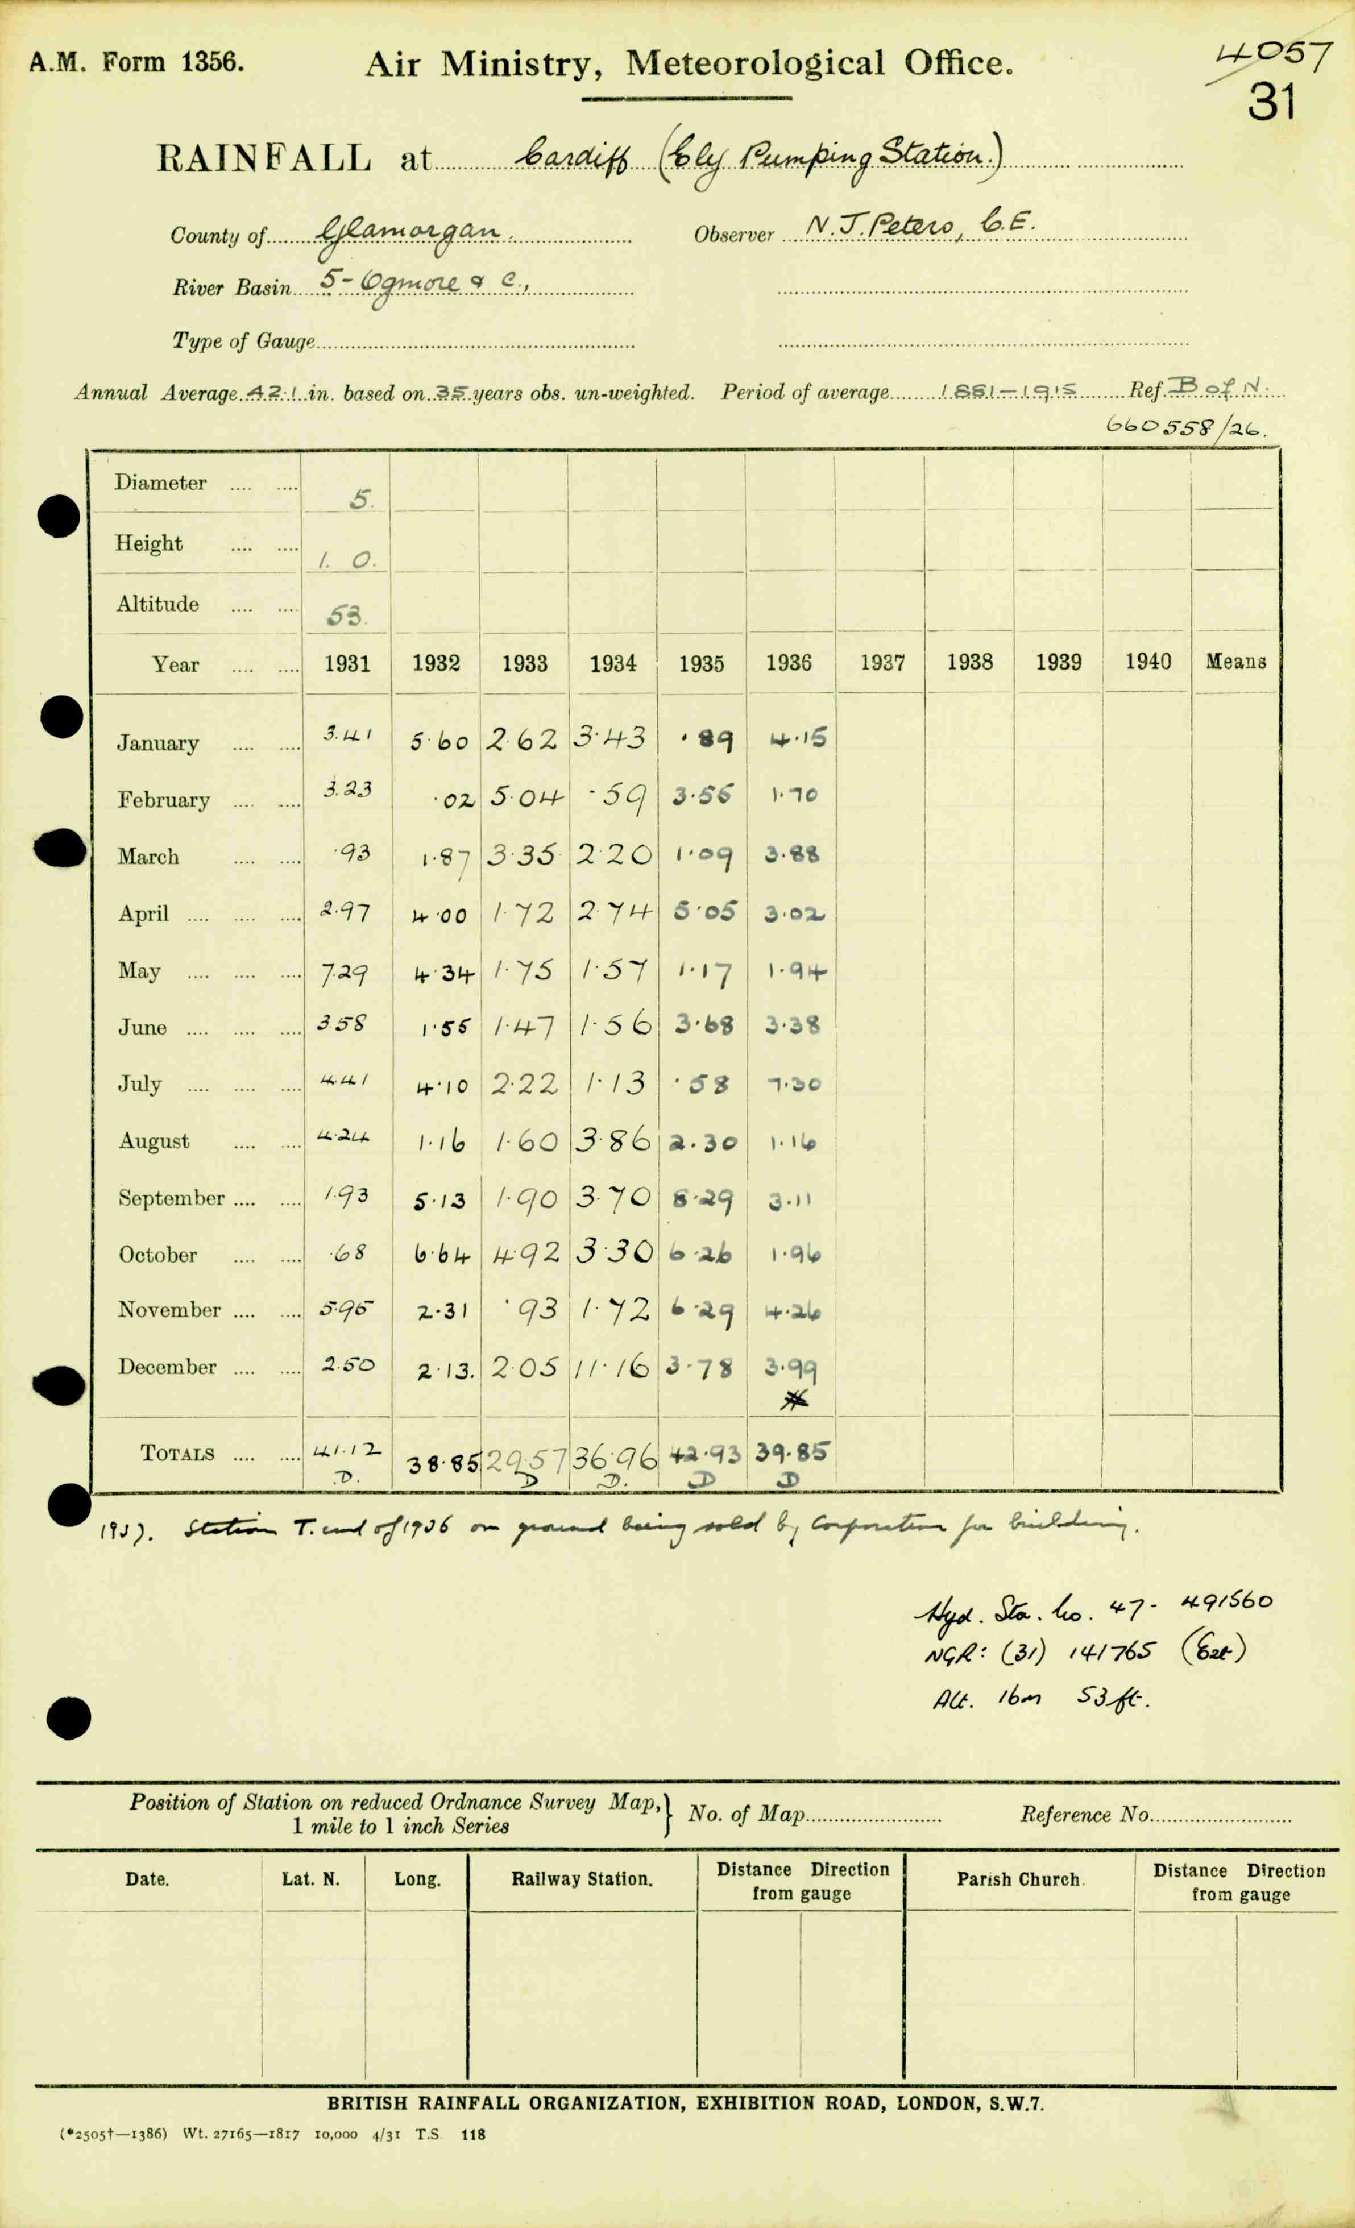 A.M. Form 1356.
Air Ministry, Meteorological Office.
4057
31
RAINFALL at Cardiff (Ely Pumping Station.)
County of Glamorgan. Observer N. J. Peters, C.E.
River Basin 5 - Ogmore & c.,
Type of Gauge
Annual Average 42.1 in. based on 35 years obs. un-weighted. Period of average 1881-1915 Ref. B of N.
660558/26.
Diameter .... .... 5.
Height .... .... 1. 0.
Altitude .... .... 53.
Year .... .... 1931 1932 1933 1934 1935 1936 1937 1938 1939 1940 Means
January .... .... 3.41 5.60 2.62 3.43 .89 4.15
February .... .... 3.23 .02 5.04 .59 3.55 1.70
March .... .... .93 1.87 3.35 2.20 1.09 3.88
April .... .... .... 2.97 4.00 1.72 2.74 5.05 3.02
May .... .... .... 7.29 4.34 1.75 1.57 1.17 1.94
June .... .... .... 3.58 1.55 1.47 1.56 3.68 3.38
July .... .... .... 4.41 4.10 2.22 1.13 .58 7.30
August .... .... 4.24 1.16 1.60 3.86 2.30 1.16
September .... .... 1.93 5.13 1.90 3.70 8.29 3.11
October .... .... .68 6.64 4.92 3.30 6.26 1.96
November .... .... 5.95 2.31 .93 1.72 6.29 4.26
December .... .... 2.50 2.13. 2.05 11.16 3.78 3.99
TOTALS .... .... 41.12 38.85 29.57 36.96 42.93 39.85
D. D D. D D
1937. Station T. end of 1936 on ground being sold by Corporation for building.
Hyd. Sta. No. 47- 491560
NGR: (31) 141765 (Est)
Alt. 16m 53 ft.
Position of Station on reduced Ordnance Survey Map, } No. of Map Reference No.
1 mile to 1 inch Series
Date. Lat. N. Long. Railway Station. Distance Direction from gauge Parish Church. Distance Direction from gauge
BRITISH RAINFALL ORGANIZATION, EXHIBITION ROAD, LONDON, S.W.7.
(*2505†—1386) Wt. 27165—1817 10,000 4/31 T.S. 118